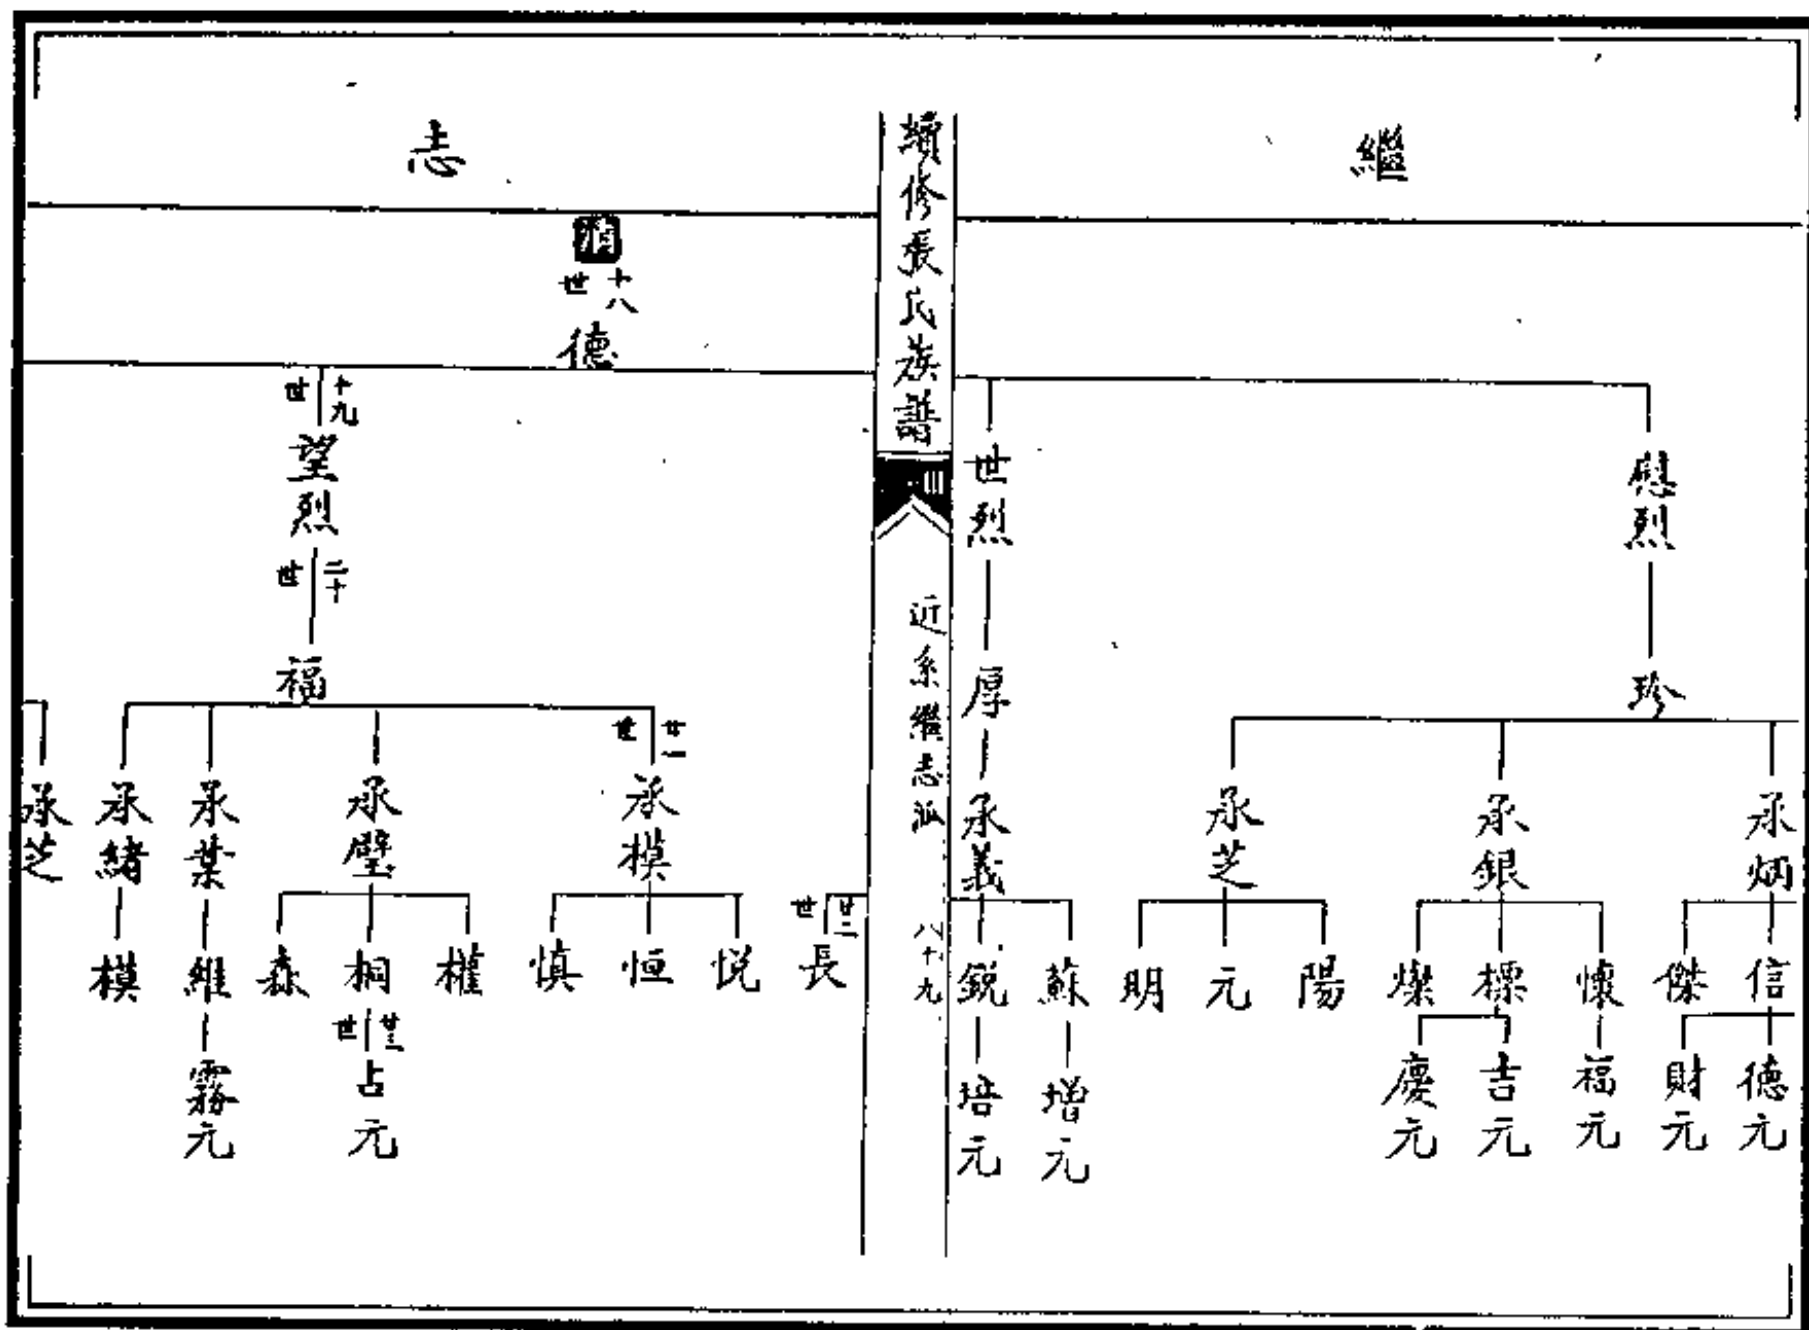 繼
慰烈
珍
承炳
信
德元
傑
財元
承銀
懷
福元
標
吉元
慶元
燦
承芝
陽
元
明
世烈
厚
承義
蘇
增元
銳
培元
續修張氏族譜
近系繼志派
八十九
志
十八世
德
十九世
望烈
二十世
福
廿一世
承模
廿二世
長
悅
恒
慎
承璧
權
桐
廿三世
占元
森
承葉
維
霧元
承緒
模
承芝